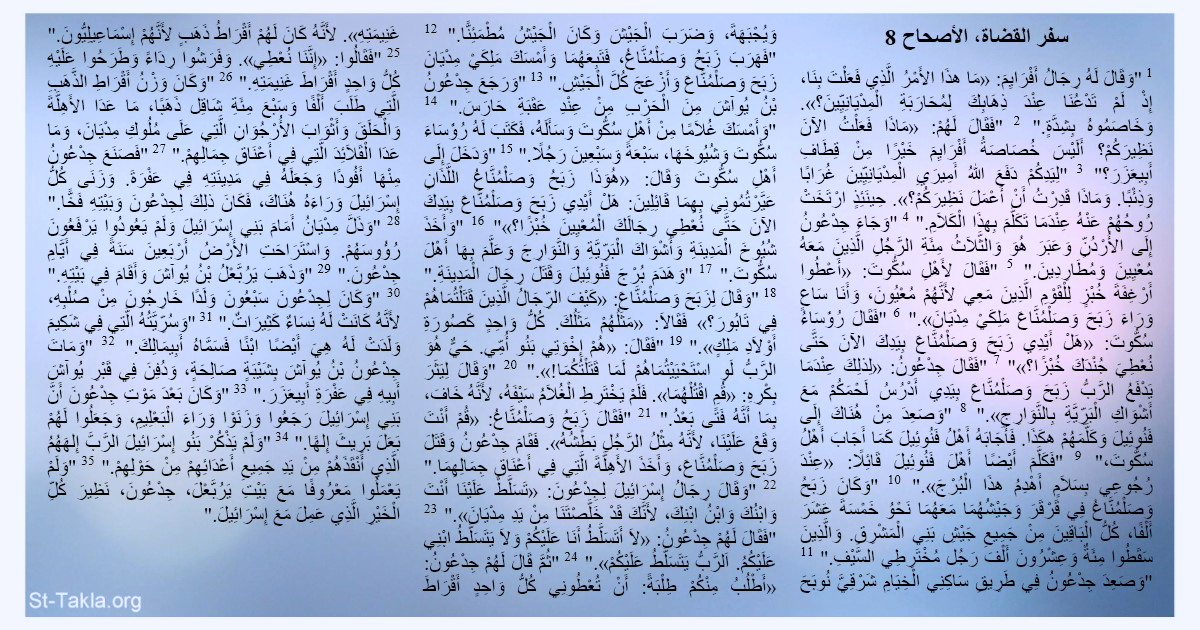 سفر القضاة، الأصحاح 8
1 "وَقَالَ لَهُ رِجَالُ أَفْرَايِمَ: «مَا هذَا الأَمْرُ الَّذِي فَعَلْتَ بِنَا،
إِذْ لَمْ تَدْعُنَا عِنْدَ ذِهَابِكَ لِمُحَارَبَةِ الْمِدْيَانِيِّينَ؟».
وَخَاصَمُوهُ بِشِدَّةٍ." 2 "فَقَالَ لَهُمْ: «مَاذَا فَعَلْتُ الآنَ
نَظِيرَكُمْ؟ أَلَيْسَ خُصَاصَةُ أَفْرَايِمَ خَيْرًا مِنْ قِطَافِ
أَبِيعَزَرَ؟" 3 "لِيَدِكُمْ دَفَعَ اللهُ أَمِيرَيِ الْمِدْيَانِيِّينَ غُرَابًا
وَذِئْبًا. وَمَاذَا قَدِرْتُ أَنْ أَعْمَلَ نَظِيرَكُمْ؟». حِينَئِذٍ ارْتَخَتْ
رُوحُهُمْ عَنْهُ عِنْدَمَا تَكَلَّمَ بِهذَا الْكَلاَمِ." 4 "وَجَاءَ جِدْعُونُ
إِلَى الأُرْدُنِّ وَعَبَرَ هُوَ وَالثَّلاَثُ مِئَةِ الرَّجُلِ الَّذِينَ مَعَهُ
مُعْيِينَ وَمُطَارِدِينَ." 5 "فَقَالَ لأَهْلِ سُكُّوتَ: «أَعْطُوا
أَرْغِفَةَ خُبْزٍ لِلْقَوْمِ الَّذِينَ مَعِي لأَنَّهُمْ مُعْيُونَ، وَأَنَا سَاعٍ
وَرَاءَ زَبَحَ وَصَلْمُنَّاعَ مَلِكَيْ مِدْيَانَ»." 6 "فَقَالَ رُؤَسَاءُ
سُكُّوتَ: «هَلْ أَيْدِي زَبَحَ وَصَلْمُنَّاعَ بِيَدِكَ الآنَ حَتَّى
نُعْطِيَ جُنْدَكَ خُبْزًا؟»" 7 "فَقَالَ جِدْعُونُ: «لِذلِكَ عِنْدَمَا
يَدْفَعُ الرَّبُّ زَبَحَ وَصَلْمُنَّاعَ بِيَدِي أَدْرُسُ لَحْمَكُمْ مَعَ
أَشْوَاكِ الْبَرِّيَّةِ بِالنَّوَارِجِ»." 8 "وَصَعِدَ مِنْ هُنَاكَ إِلَى
فَنُوئِيلَ وَكَلَّمَهُمْ هكَذَا. فَأَجَابَهُ أَهْلُ فَنُوئِيلَ كَمَا أَجَابَ أَهْلُ
سُكُّوتَ،" 9 "فَكَلَّمَ أَيْضًا أَهْلَ فَنُوئِيلَ قَائِلًا: «عِنْدَ
رُجُوعِي بِسَلاَمٍ أَهْدِمُ هذَا الْبُرْجَ»." 10 "وَكَانَ زَبَحُ
وَصَلْمُنَّاعُ فِي قَرْقَرَ وَجَيْشُهُمَا مَعَهُمَا نَحْوُ خَمْسَةَ عَشَرَ
أَلْفًا، كُلُّ الْبَاقِينَ مِنْ جَمِيعِ جَيْشِ بَنِي الْمَشْرِقِ. وَالَّذِينَ
سَقَطُوا مِئَةٌ وَعِشْرُونَ أَلْفَ رَجُل مُخْتَرِطِي السَّيْفِ." 11
"وَصَعِدَ جِدْعُونُ فِي طَرِيقِ سَاكِنِي الْخِيَامِ شَرْقِيَّ نُوبَحَ
وَيُجْبَهَةَ، وَضَرَبَ الْجَيْشَ وَكَانَ الْجَيْشُ مُطْمَئِنًّا." 12
"فَهَرَبَ زَبَحُ وَصَلْمُنَّاعُ، فَتَبِعَهُمَا وَأَمْسَكَ مَلِكَيْ مِدْيَانَ
زَبَحَ وَصَلْمُنَّاعَ وَأَزْعَجَ كُلَّ الْجَيْشِ." 13 "وَرَجَعَ جِدْعُونُ
بْنُ يُوآشَ مِنَ الْحَرْبِ مِنْ عِنْدِ عَقَبَةِ حَارَسَ." 14
"وَأَمْسَكَ غُلاَمًا مِنْ أَهْلِ سُكُّوتَ وَسَأَلَهُ، فَكَتَبَ لَهُ رُؤَسَاءَ
سُكُّوتَ وَشُيُوخَهَا، سَبْعَةً وَسَبْعِينَ رَجُلًا." 15 "وَدَخَلَ إِلَى
أَهْلِ سُكُّوتَ وَقَالَ: «هُوَذَا زَبَحُ وَصَلْمُنَّاعُ اللَّذَانِ
عَيَّرْتُمُونِي بِهِمَا قَائِلِينَ: هَلْ أَيْدِي زَبَحَ وَصَلْمُنَّاعَ بِيَدِكَ
الآنَ حَتَّى نُعْطِي رِجَالَكَ الْمُعْيِينَ خُبْزًا؟»" 16 "وَأَخَذَ
شُيُوخَ الْمَدِينَةِ وَأَشْوَاكَ الْبَرِّيَّةِ وَالنَّوَارِجَ وَعَلَّمَ بِهَا أَهْلَ
سُكُّوتَ." 17 "وَهَدَمَ بُرْجَ فَنُوئِيلَ وَقَتَلَ رِجَالَ الْمَدِينَةِ."
18 "وَقَالَ لِزَبَحَ وَصَلْمُنَّاعَ: «كَيْفَ الرِّجَالُ الَّذِينَ قَتَلْتُمَاهُمْ
فِي تَابُورَ؟» فَقَالاَ: «مَثَلُهُمْ مَثَلُكَ. كُلُّ وَاحِدٍ كَصُورَةِ
أَوْلاَدِ مَلِكٍ»." 19 "فَقَالَ: «هُمْ إِخْوَتِي بَنُو أُمِّي. حَيٌّ هُوَ
الرَّبُّ لَوِ اسْتَحْيَيْتُمَاهُمْ لَمَا قَتَلْتُكُمَا!»." 20 "وَقَالَ لِيَثَرَ
بِكْرِهِ: «قُمِ اقْتُلْهُمَا». فَلَمْ يَخْتَرِطِ الْغُلاَمُ سَيْفَهُ، لأَنَّهُ خَافَ،
بِمَا أَنَّهُ فَتًى بَعْدُ." 21 "فَقَالَ زَبَحُ وَصَلْمُنَّاعُ: «قُمْ أَنْتَ
وَقَعْ عَلَيْنَا، لأَنَّهُ مِثْلُ الرَّجُلِ بَطْشُهُ». فَقَامَ جِدْعُونُ وَقَتَلَ
زَبَحَ وَصَلْمُنَّاعَ، وَأَخَذَ الأَهِلَّةَ الَّتِي فِي أَعْنَاقِ جِمَالِهِمَا."
22 "وَقَالَ رِجَالُ إِسْرَائِيلَ لِجِدْعُونَ: «تَسَلَّطْ عَلَيْنَا أَنْتَ
وَابْنُكَ وَابْنُ ابْنِكَ، لأَنَّكَ قَدْ خَلَّصْتَنَا مِنْ يَدِ مِدْيَانَ»." 23
"فَقَالَ لَهُمْ جِدْعُونُ: «لاَ أَتَسَلَّطُ أَنَا عَلَيْكُمْ وَلاَ يَتَسَلَّطُ ابْنِي
عَلَيْكُمُ. الرَّبُّ يَتَسَلَّطُ عَلَيْكُمْ»." 24 "ثُمَّ قَالَ لَهُمْ جِدْعُونُ:
«أَطْلُبُ مِنْكُمْ طِلْبَةً: أَنْ تُعْطُونِي كُلُّ وَاحِدٍ أَقْرَاطَ
غَنِيمَتِهِ». لأَنَّهُ كَانَ لَهُمْ أَقْرَاطُ ذَهَبٍ لأَنَّهُمْ إِسْمَاعِيلِيُّونَ."
25 "فَقَالُوا: «إِنَّنَا نُعْطِي». وَفَرَشُوا رِدَاءً وَطَرَحُوا عَلَيْهِ
كُلُّ وَاحِدٍ أَقْرَاطَ غَنِيمَتِهِ." 26 "وَكَانَ وَزْنُ أَقْرَاطِ الذَّهَبِ
الَّتِي طَلَبَ أَلْفًا وَسَبْعَ مِئَةِ شَاقِل ذَهَبًا، مَا عَدَا الأَهِلَّةَ
وَالْحَلَقَ وَأَثْوَابَ الأُرْجُوَانِ الَّتِي عَلَى مُلُوكِ مِدْيَانَ، وَمَا
عَدَا الْقَلاَئِدَ الَّتِي فِي أَعْنَاقِ جِمَالِهِمْ." 27 "فَصَنَعَ جِدْعُونُ
مِنْهَا أَفُودًا وَجَعَلَهُ فِي مَدِينَتِهِ فِي عَفْرَةَ. وَزَنَى كُلُّ
إِسْرَائِيلَ وَرَاءَهُ هُنَاكَ، فَكَانَ ذلِكَ لِجِدْعُونَ وَبَيْتِهِ فَخًّا."
28 "وَذَلَّ مِدْيَانُ أَمَامَ بَنِي إِسْرَائِيلَ وَلَمْ يَعُودُوا يَرْفَعُونَ
رُؤُوسَهُمْ. وَاسْتَرَاحَتِ الأَرْضُ أَرْبَعِينَ سَنَةً فِي أَيَّامِ
جِدْعُونَ." 29 "وَذَهَبَ يَرُبَّعْلُ بْنُ يُوآشَ وَأَقَامَ فِي بَيْتِهِ."
30 "وَكَانَ لِجِدْعُونَ سَبْعُونَ وَلَدًا خَارِجُونَ مِنْ صُلْبِهِ،
لأَنَّهُ كَانَتْ لَهُ نِسَاءٌ كَثِيرَاتٌ." 31 "وَسُرِّيَّتُهُ الَّتِي فِي شَكِيمَ
وَلَدَتْ لَهُ هِيَ أَيْضًا ابْنًا فَسَمَّاهُ أَبِيمَالِكَ." 32 "وَمَاتَ
جِدْعُونُ بْنُ يُوآشَ بِشَيْبَةٍ صَالِحَةٍ، وَدُفِنَ فِي قَبْرِ يُوآشَ
أَبِيهِ فِي عَفْرَةِ أَبِيعَزَرَ." 33 "وَكَانَ بَعْدَ مَوْتِ جِدْعُونَ أَنَّ
بَنِي إِسْرَائِيلَ رَجَعُوا وَزَنَوْا وَرَاءَ الْبَعْلِيمِ، وَجَعَلُوا لَهُمْ
بَعَلَ بَرِيثَ إِلهًا." 34 "وَلَمْ يَذْكُرْ بَنُو إِسْرَائِيلَ الرَّبَّ إِلهَهُمُ
الَّذِي أَنْقَذَهُمْ مِنْ يَدِ جَمِيعِ أَعْدَائِهِمْ مِنْ حَوْلِهِمْ." 35 "وَلَمْ
يَعْمَلُوا مَعْرُوفًا مَعَ بَيْتِ يَرُبَّعْلَ، جِدْعُونَ، نَظِيرَ كُلِّ
الْخَيْرِ الَّذِي عَمِلَ مَعَ إِسْرَائِيلَ."
St-Takla.org